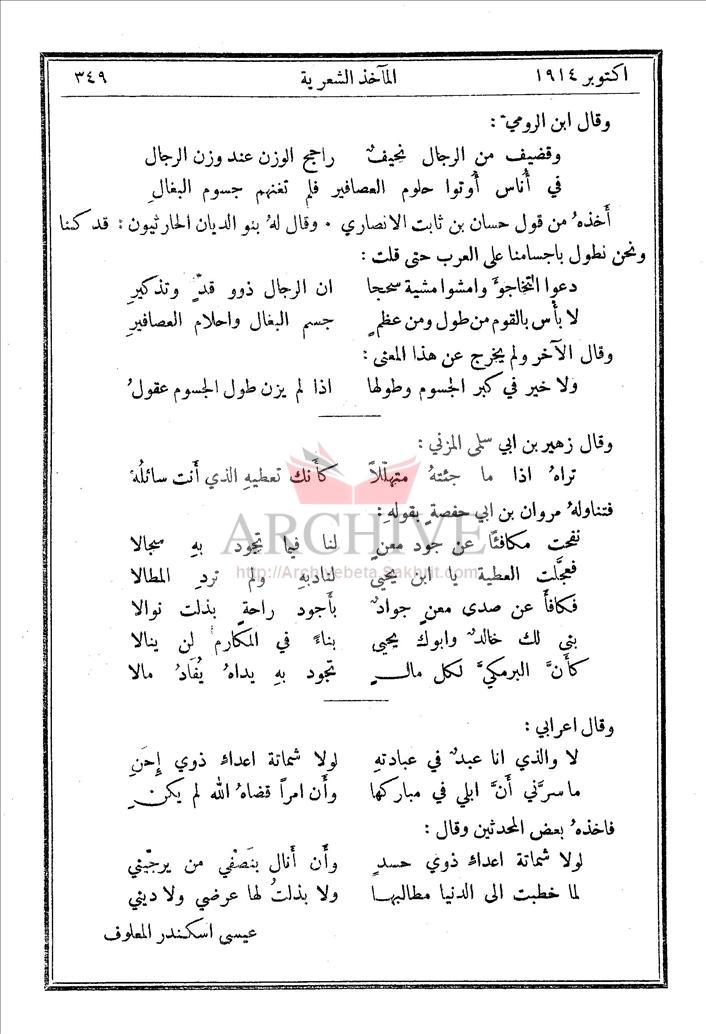 اكتوبر ١٩١٤ المآخذ الشعرية ٣٤٩
وقال ابن الرومي :
وقضيف من الرجال نحيفٌ راجح الوزن عند وزن الرجال
في أُناس أُوتوا حلوم العصافير فلم تغنهم جسوم البغالِ
أَخذهُ من قول حسان بن ثابت الانصاري ٠ وقال لهُ بنو الديان الحارثيون : قد كنا
ونحن نطول باجسامنا على العرب حتى قلت :
دعوا التخاجوَّ وامشوا مشية سححا ان الرجال ذوو قدٍّ وتذكيرِ
لا بأْس بالقوم من طول ومن عظمٍ جسم البغال واحلام العصافيرِ
وقال الآخر ولم يخرج عن هذا المعنى :
ولا خير في كبر الجسوم وطولها اذا لم يزن طول الجسوم عقولُ
وقال زهير بن ابي سلمى المزني :
تراهُ اذا ما جئتهُ متهلّلاً كأَنك تعطيهِ الذي أَنت سائلُهُ
فتناولهُ مروان بن ابي حفصةٍ بقولهِ :
ARCHIVE
نفحت مكافئًا عن جود معنٍ لنا فيما تجود بهِ سجالا
http://Archivebeta.Sakhrit.com
فعجَّلت العطية يا ابن يحيى لنادبهِ ولم تردِ المطالا
فكافأَ عن صدى معنٍ جوادٌ بأَجود راحةٍ بذلت نوالا
بنى لك خالدٌ وابوك يحيى بناءً في المكارم لن ينالا
كأَنَّ البرمكيَّ لكل مالـــٍ تجود بهِ يداهُ يُفَادُ مالا
وقال اعرابي :
لا والذي انا عبدٌ في عبادتهِ لولا شماتة اعداء ذوي إِحَنِ
ما سرَّني أَنَّ ابلي في مباركها وأَن امرًا قضاهُ الله لم يكنِ
فاخذهُ بعض المحدثين وقال :
لولا شماتة اعداء ذوي حسدٍ وأَن أَنال بنَصْفي من يرجّيني
لما خطبت الى الدنيا مطالبها ولا بذلتُ لها عرضي ولا ديني
عيسى اسكندر المعلوف